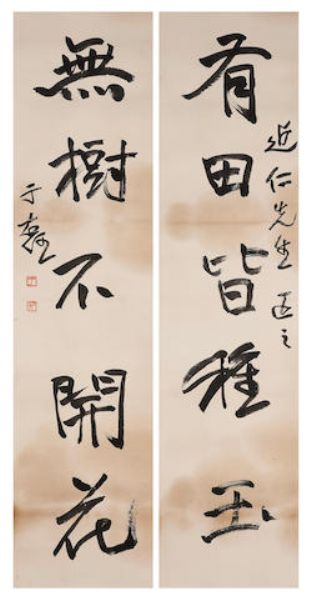 有田皆種玉
近仁先生 之
無樹不開花
于